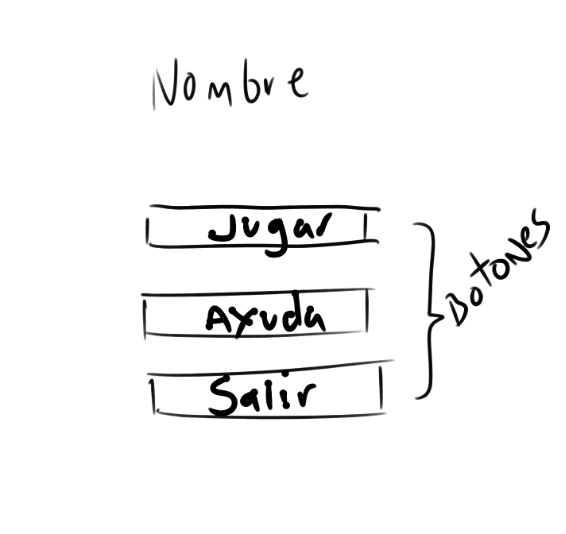 Nombre
Jugar
Ayuda
Salir
Botones